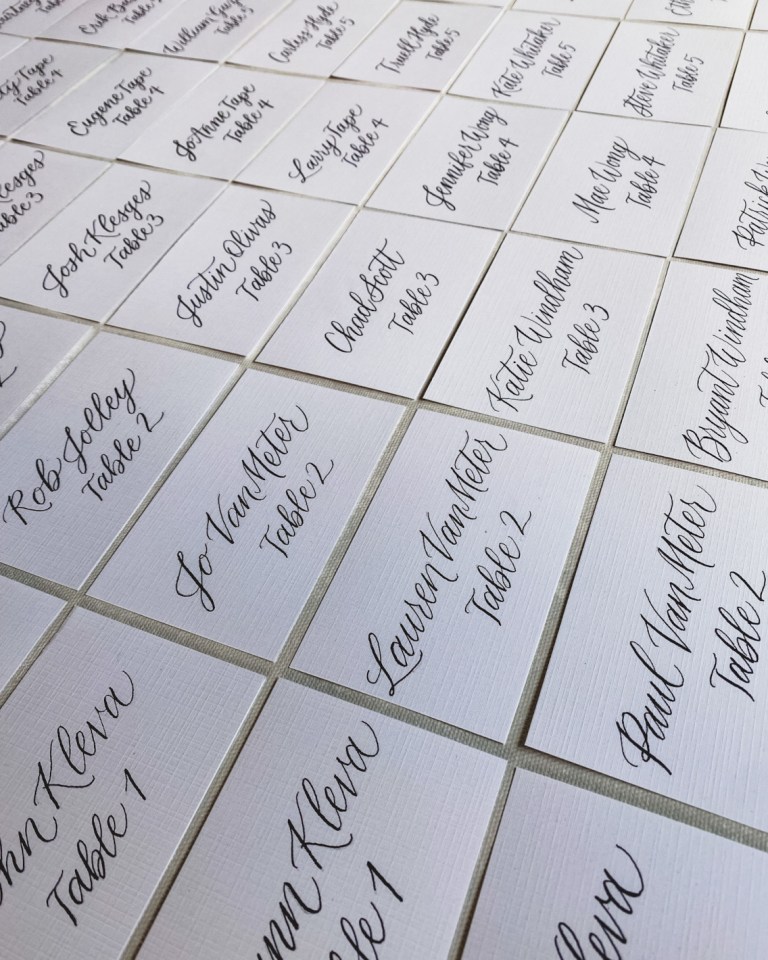 Table 5
William
Table 5
Carless Hyde
Table 5
Truett Hyde
Table 5
Kate Whitaker
Table 5
Steve Whitaker
Table 5
Tape
Table 4
Eugene Tape
Table 4
JoAnne Tape
Table 4
Larry Tape
Table 4
Jennifer Wong
Table 4
Mae Wong
Table 4
Patrick
Klesges
Table 3
Josh Klesges
Table 3
Justin Olivas
Table 3
Chad Scott
Table 3
Katie Windham
Table 3
Bryant Windham
Rob Jolley
Table 2
Jo VanMeter
Table 2
Lauren VanMeter
Table 2
Paul VanMeter
Table 2
hn Kleva
Table 1
nn Kleva
ble 1
leva